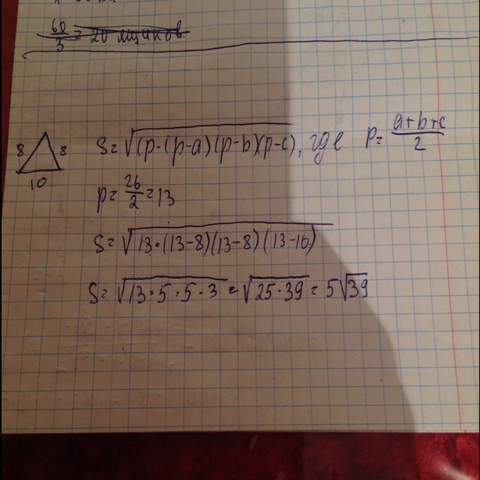 60/3 = 20 ящиков.
8 8
10
S=√(p·(p-a)(p-b)(p-c), где p= a+b+c/2
p= 26/2 =13
S=√13·(13-8)(13-8)(13-10)
S=√13·5·5·3 = √25·39 = 5√39